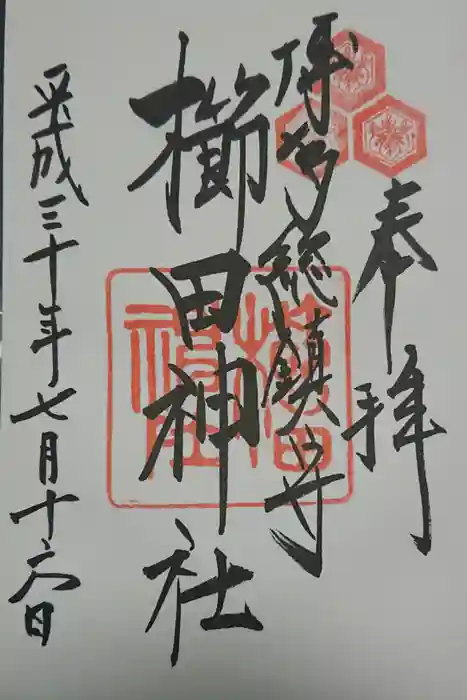 奉拝
博多總鎮守
櫛田神社
平成三十年七月十六日
櫛田神社